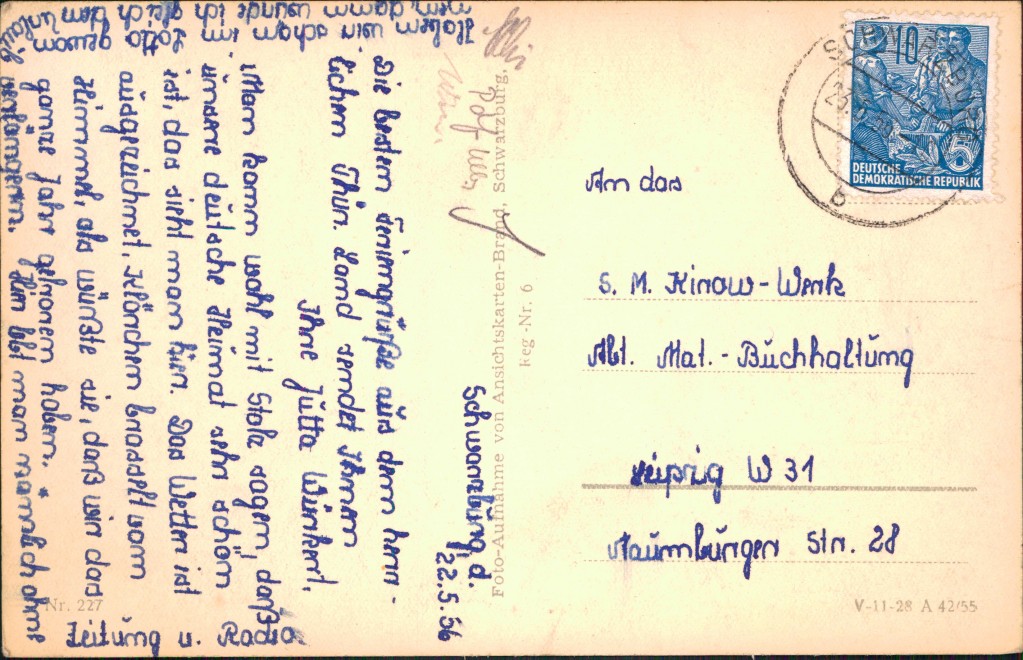 Schwarzburg, d.
22.5.56
Die besten Feriengrüße aus dem herr-
lichen Thür. Land sendet Ihnen
Ihre Jutta Wünkert.
Man kann wohl mit Stolz sagen, daß
unsere deutsche Heimat sehr schön
ist, das sieht man hier. Das Wetter ist
ausgezeichnet, Klärchen brasselt vom
Himmel, als wüßte sie, daß wir das
ganze Jahr gefroren haben. * Hier lebt man mamalich ohne
Zeitung u. Radio.
Haben wir schon im Lotto gewon
nen, dann würde ich gleich den Urlaub
verlängern.
Foto-Aufnahme von Ansichtskarten-Brand, Schwarzburg.
Reg.-Nr. 6
Nr. 227
10
5
DEUTSCHE
DEMOKRATISCHE REPUBLIK
SCHWARZBURG
b
An das
S. M. Kirow-Werk
Abt. Mat.-Buchhaltung
Leipzig W 31
Naumburger Str. 28
V-11-28 A 42/55